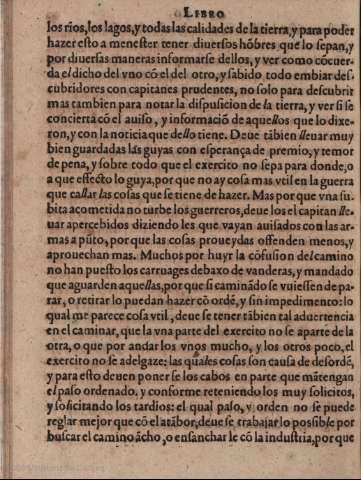 LIBRO
los ríos, los lagos, y todas las calidades de la tierra, y para poder
hazer esto a menester tener diuersos hōbres que lo sepan, y
por diuersas maneras informarse dellos, y ver como cōcuer-
da el dicho del vno cō el del otro, y sabido todo embiar des-
cubridores con capitanes prudentes, no solo para descubrir
mas tambien para notar la dispusicion de la tierra, y ver si se
concierta cō el auiso, y informació de aquellos que lo dixe-
ron, y con la noticia que dello tiene. Deue tābien lleuar muy
bien guardadas las guyas con esperança de premio, y temor
de pena, y sobre todo que el exercito no sepa para donde, o
a que efecto lo guya, por que no ay cosa mas vtil en la guerra
que callar las cosas que se tiene de hazer. Mas por que vna su-
bita acometida no turbe los guerreros, deue los el capitan lle-
uar apercebidos diziendo les que vayan auisados con las ar-
mas a pūto, por que las cosas proueydas offenden menos, y
aprouechan mas. Muchos por huyr la cōfusion del camino
no han puesto los carruages debaxo de vanderas, y mandado
que aguarden aquellas, por que si caminādo se vuiessen de pa-
rar, o retirar lo puedan hazer cō ordē, y sin impedimento: lo
qual me parece cosa vtil, deue se tener tābien tal aduertencia
en el caminar, que la vna parte del exercito no se aparte de la
otra, o que por andar los vnos mucho, y los otros poco, el
exercito no se adelgaze: las quales cosas son causa de desordē,
y para esto deuen poner se los cabos en parte que mātengan
el paso ordenado, y conforme reteniendo los muy solicitos,
y solicitando los tardios: el qual paso, y orden no se puede
reglar mejor que cō el atābor, deue se trabajar lo possible por
buscar el camino ācho, o ensanchar le cō la industria, por que